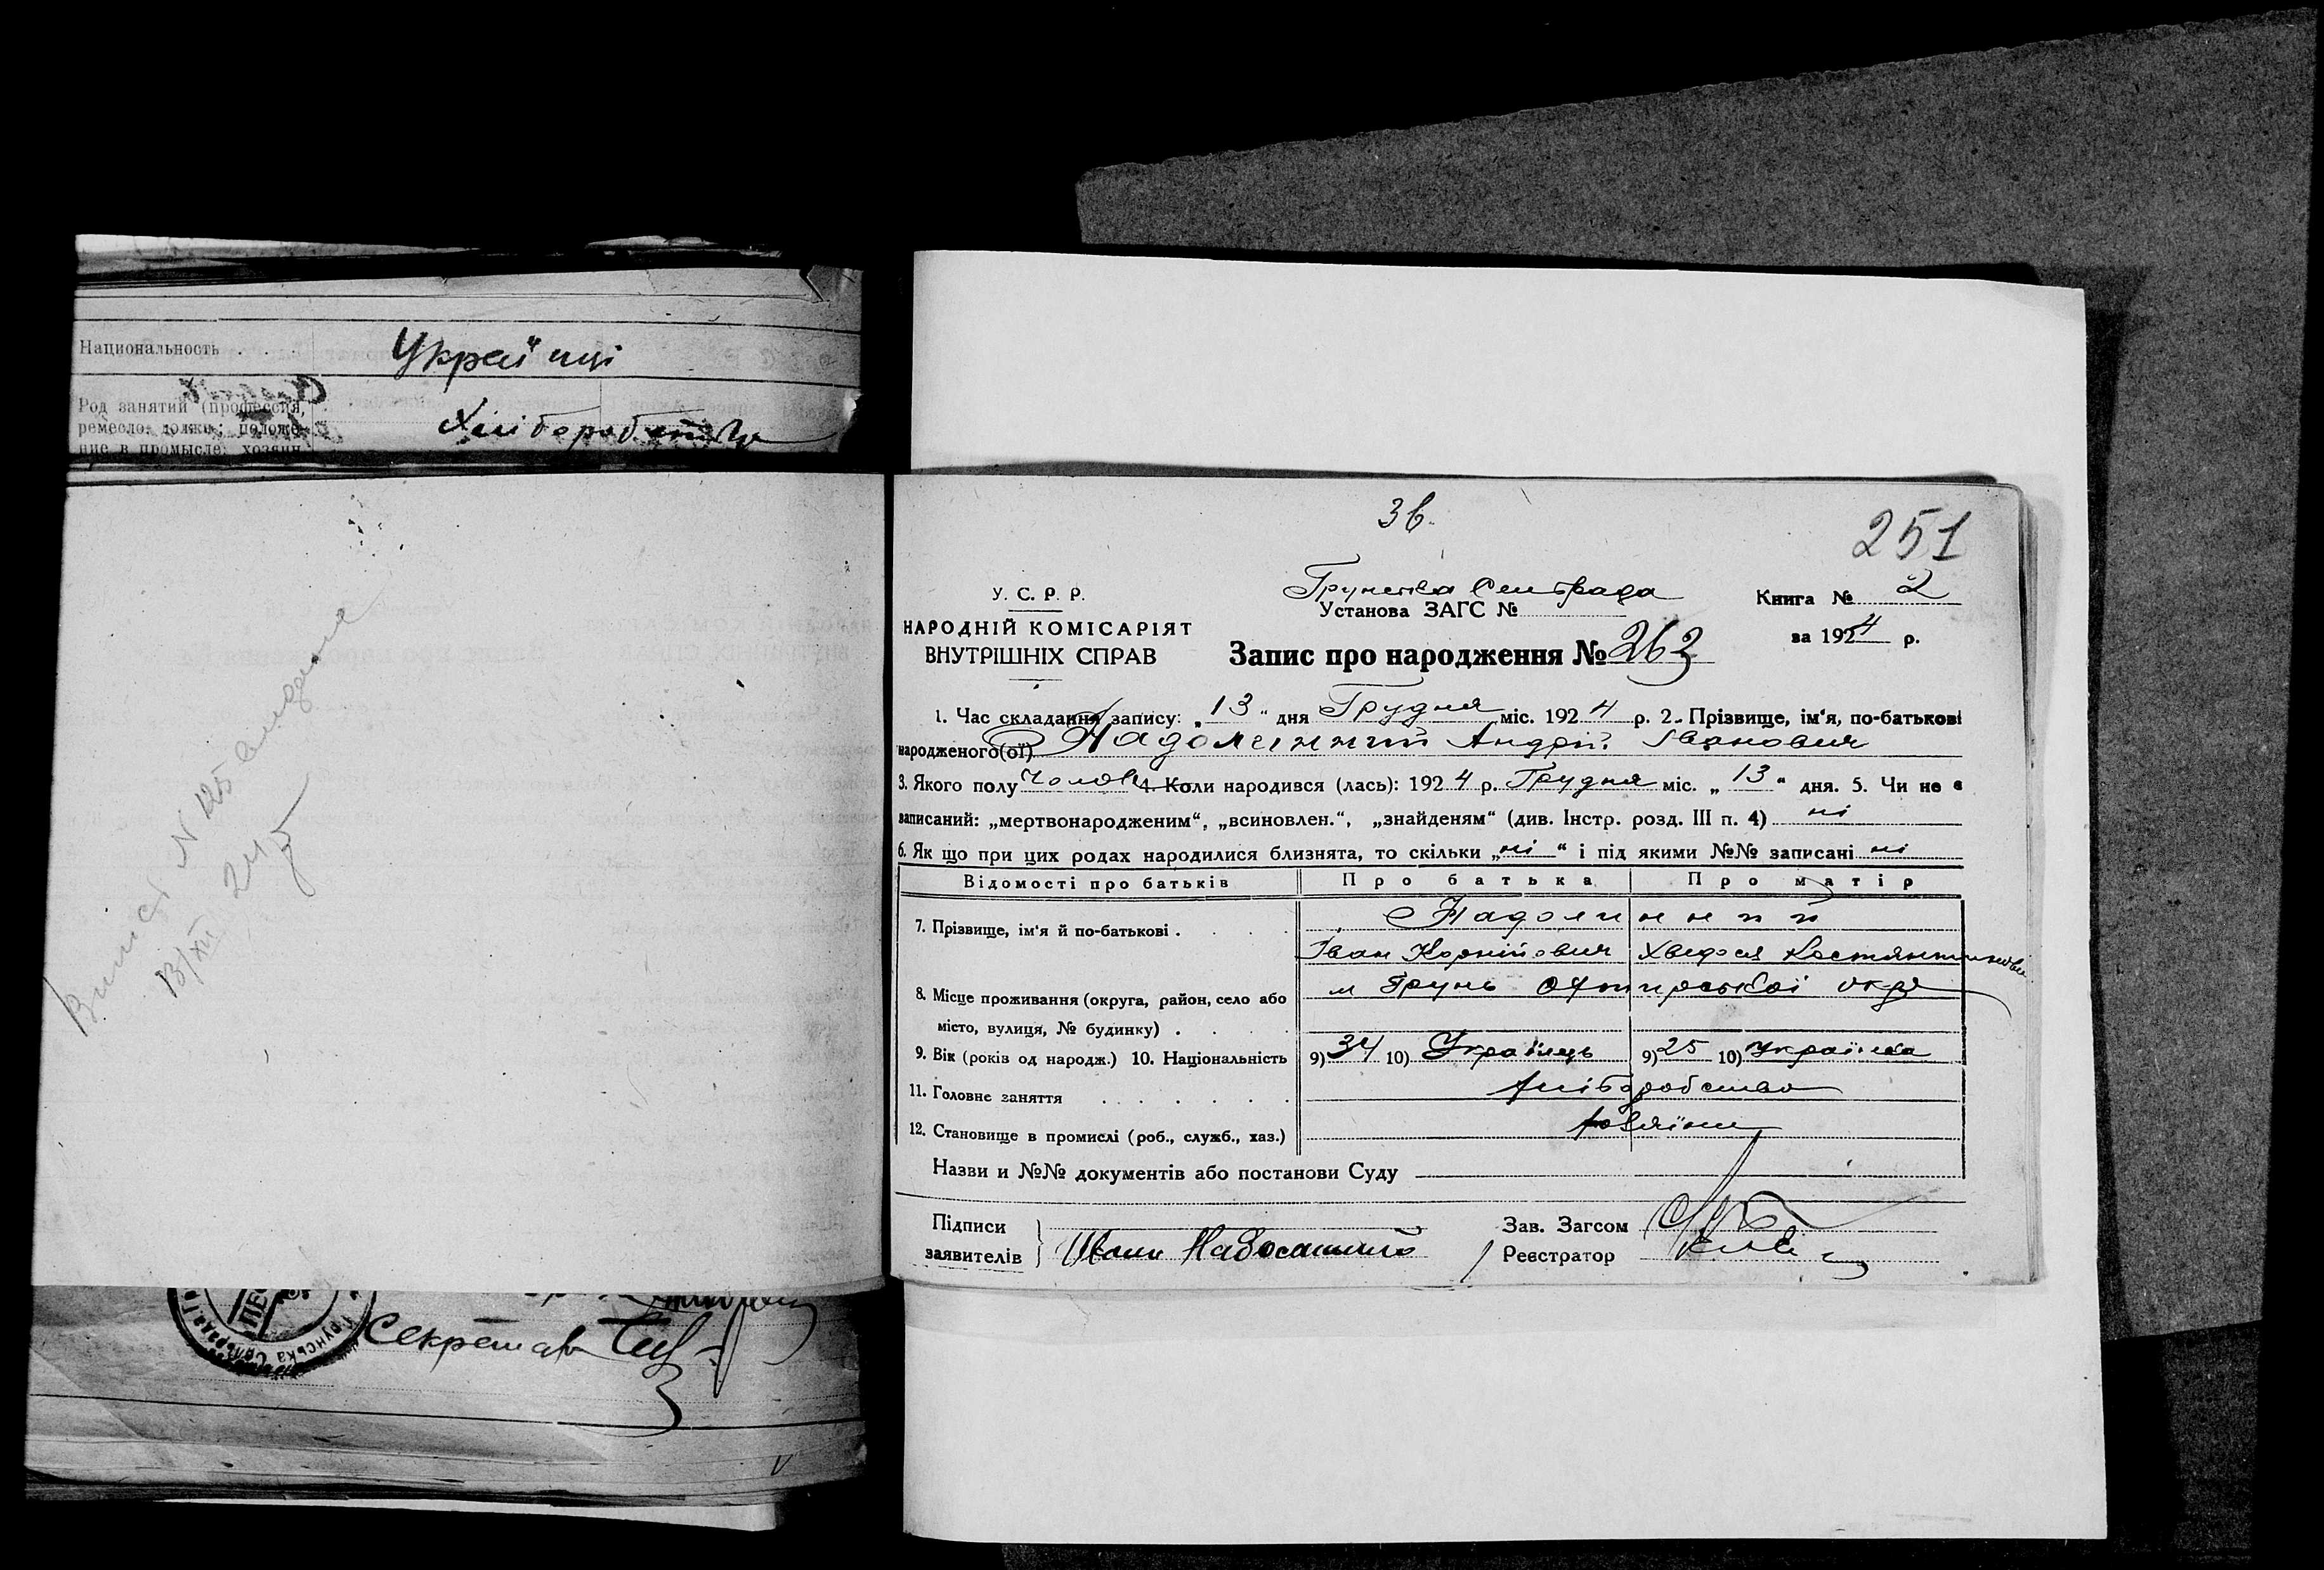 Национальность . . .
Українці
Род занятий (профессия,
ремесло, должн; положе-
ние в промысле: хозяин
Хліборобство
Випись N 125 видана
13/XII 24
Секретар
Грунська
3в.
251
У. С. Р. Р.
НАРОДНІЙ КОМІСАРІЯТ
ВНУТРІШНІХ СПРАВ
Грунська Сельрада
Установа ЗАГС №
Книга № 2
за 1924 р.
Запис про народження № 263
1. Час складання запису: „13“ дня Грудня міс. 1924 р. 2. Прізвище, ім'я, по-батькові
народженого(ої) Надолинний Андрій Іванович
3. Якого полу чолов 4. Коли народився (лась): 1924 р. Грудня міс. „13“ дня. 5. Чи не є
записаний: „мертвонародженим“, „всиновлен.“, „знайденям“ (див. Інстр. розд. III п. 4) ні
6. Як що при цих родах народилися близнята, то скільки „ні“ і під якими №№ записані ні
Відомості про батьків Про батька Про матір
7. Прізвище, ім'я й по-батькові . Надолинний
Іван Корнійович Хведося Костянтинови
8. Місце проживання (округа, район, село або м Грунь Охтирської окр
місто, вулиця, № будинку) .
9. Вік (років од народж.) 10. Національність 9) 34 10) Українець 9) 25 10) Українка
11. Головне заняття хліборобство
12. Становище в промислі (роб., служб., хаз.) хозяїни
Назви и №№ документів або постанови Суду
Підписи
заявителів
Иван
Зав. Загсом
Реєстратор